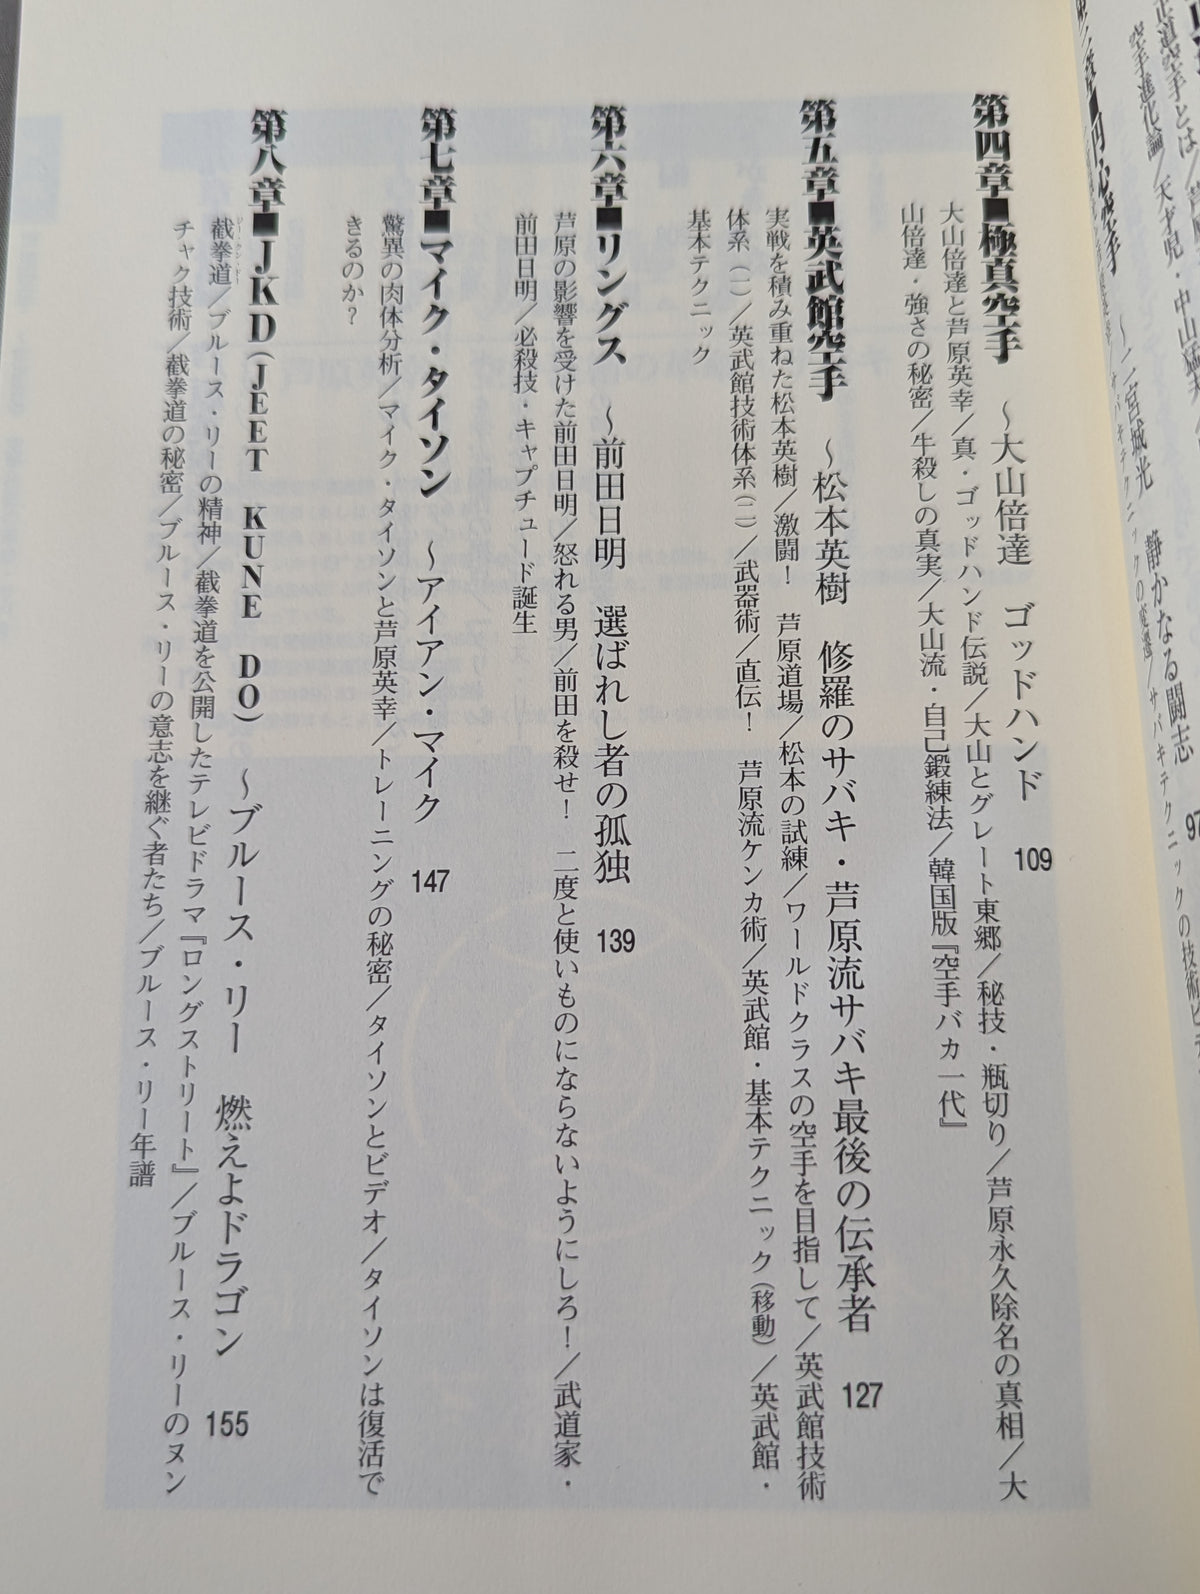 正道空手とは／
空手進化論／天才児・中山猛夫
円心空手　～二宮城光　静かなる闘志　97
サバキテクニックの変遷／サバキテクニックの技術
第四章■極真空手　～大山倍達　ゴッドハンド　109
大山倍達と芦原英幸／真・ゴッドハンド伝説／大山とグレート東郷／秘技・瓶切り／芦原永久除名の真相／大
山倍達・強さの秘密／牛殺しの真実／大山流・自己鍛練法／韓国版『空手バカ一代』
第五章■英武館空手　～松本英樹　修羅のサバキ・芦原流サバキ最後の伝承者　127
実戦を積み重ねた松本英樹／激闘！　芦原道場／松本の試練／ワールドクラスの空手を目指して／英武館技術
体系（一）／英武館技術体系（二）／武器術／直伝！　芦原流ケンカ術／英武館・基本テクニック（移動）／英武館・
基本テクニック
第六章■リングス　～前田日明　選ばれし者の孤独　139
芦原の影響を受けた前田日明／怒れる男／前田を殺せ！　二度と使いものにならないようにしろ！／武道家・
前田日明／必殺技・キャプチュード誕生
第七章■マイク・タイソン　～アイアン・マイク　147
驚異の肉体分析／マイク・タイソンと芦原英幸／トレーニングの秘密／タイソンとビデオ／タイソンは復活で
きるのか？
第八章■JKD（JEET KUNE DO）　～ブルース・リー　燃えよドラゴン　155
截拳道／ブルース・リーの精神／截拳道を公開したテレビドラマ『ロングストリート』／ブルース・リーのヌン
チャク技術／截拳道の秘密／ブルース・リーの意志を継ぐ者たち／ブルース・リー年譜